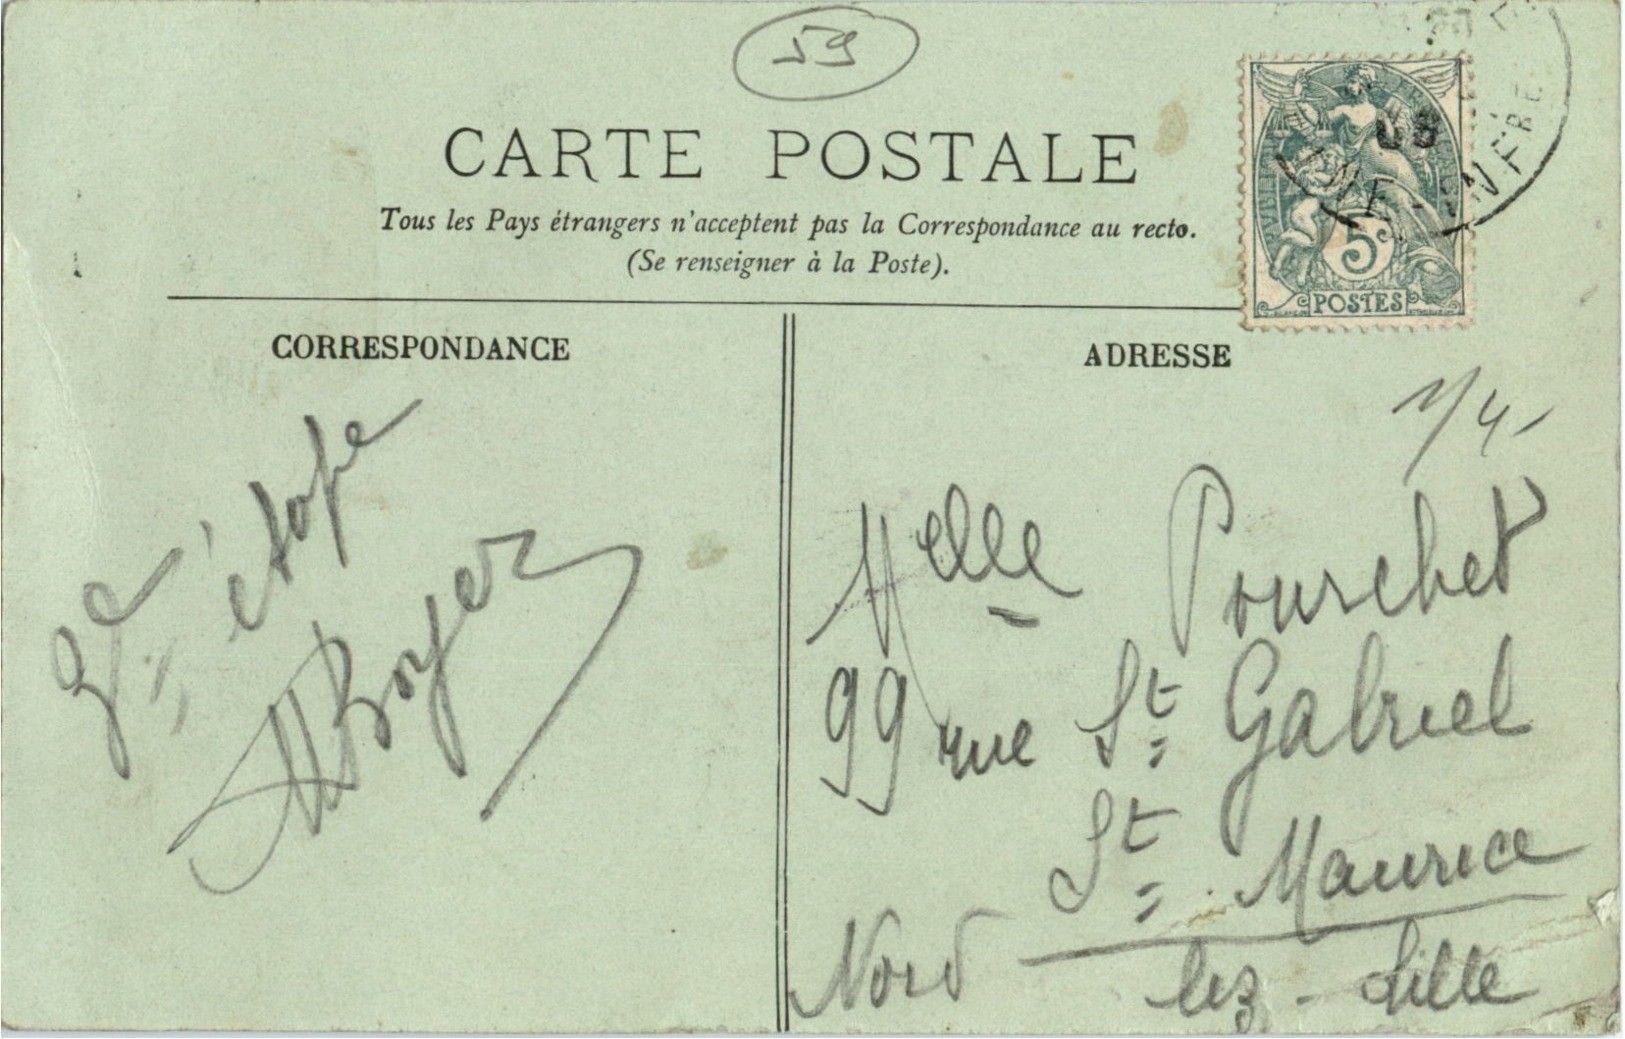 59
CARTE POSTALE
Tous les Pays étrangers n'acceptent pas la Correspondance au recto.
(Se renseigner à la Poste).
5c
POSTES
08
CORRESPONDANCE
ADRESSE
étape
Boyer
1/4-
Melle Pourchet
99 rue St Gabriel
St Maurice
Nord lez-Lille